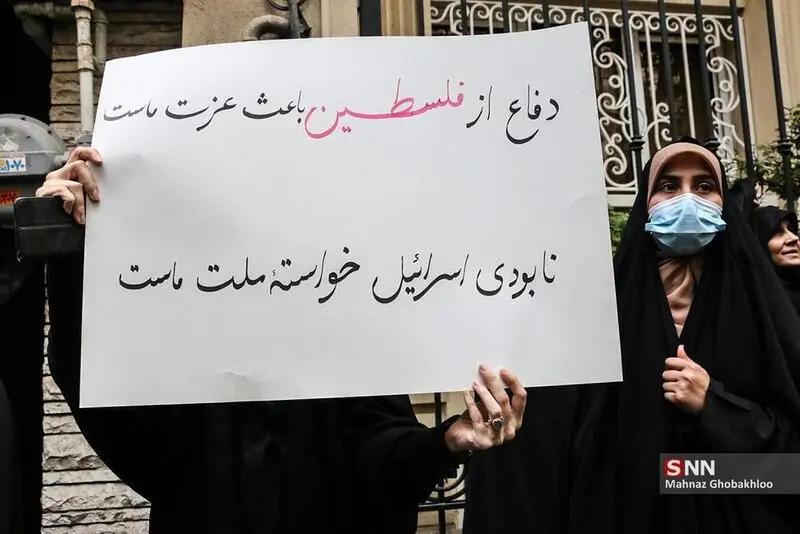 دفاع از فلسطین باعث عزت ماست
نابودی اسرائیل خواستهٔ ملت ماست
SNN
Mahnaz Ghobakhloo